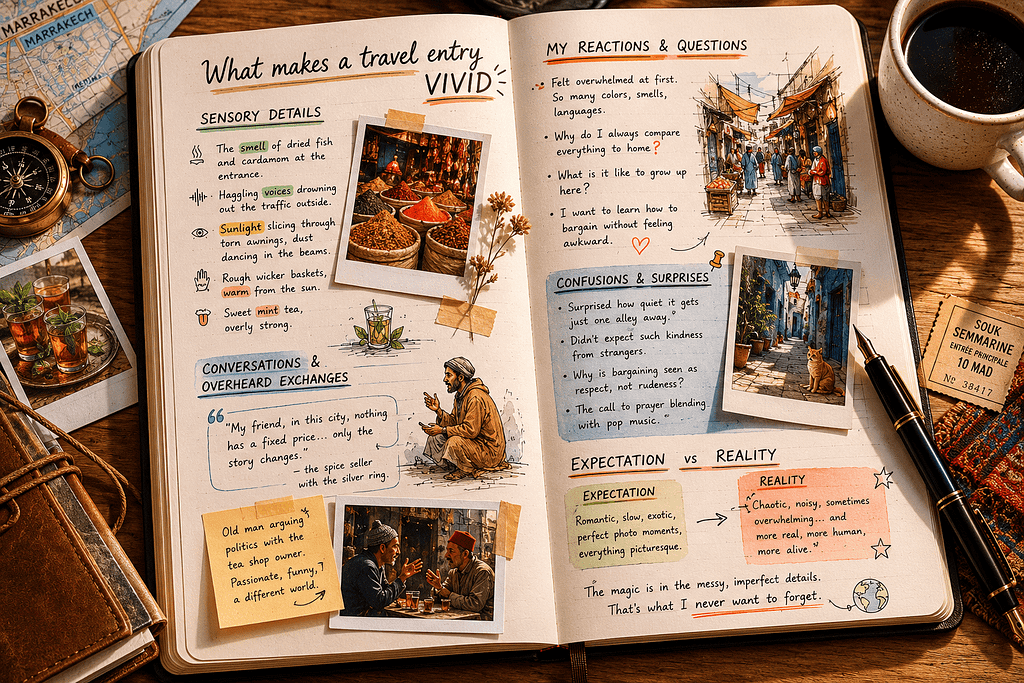 MARRAKECH
MARRAKECH
MEDINA
What makes a travel entry
VIVID
SENSORY DETAILS
The smell of dried fish
and cardamom at the
entrance.
Haggling voices drowning
out the traffic outside.
Sunlight slicing through
torn awnings, dust
dancing in the beams.
Rough wicker baskets,
warm from the sun.
Sweet mint tea,
overly strong.
CONVERSATIONS &
OVERHEARD EXCHANGES
"My friend, in this city, nothing
has a fixed price... only the
story changes."
– the spice seller
with the silver ring.
Old man arguing
politics with the
tea shop owner.
Passionate, funny,
a different world.
MY REACTIONS & QUESTIONS
Felt overwhelmed at first.
So many colors, smells,
languages.
• Why do I always compare
everything to home?
• What is it like to grow up
here?
• I want to learn how to
bargain without feeling
awkward.
CONFUSIONS & SURPRISES
• Surprised how quiet it gets
just one alley away."
• Didn't expect such kindness
from strangers.
• Why is bargaining seen as
respect, not rudeness?
• The call to prayer blending
with pop music."
EXPECTATION vs REALITY
EXPECTATION
Romantic, slow, exotic,
perfect photo moments,
everything picturesque.
REALITY
Chaotic, noisy, sometimes
overwhelming... and
more real, more human,
more alive."
The magic is in the messy, imperfect details.
That's what I never want to forget.
SOUK
SEMMARINE
ENTRÉE PRINCIPALE
10 MAD
Nº 38417